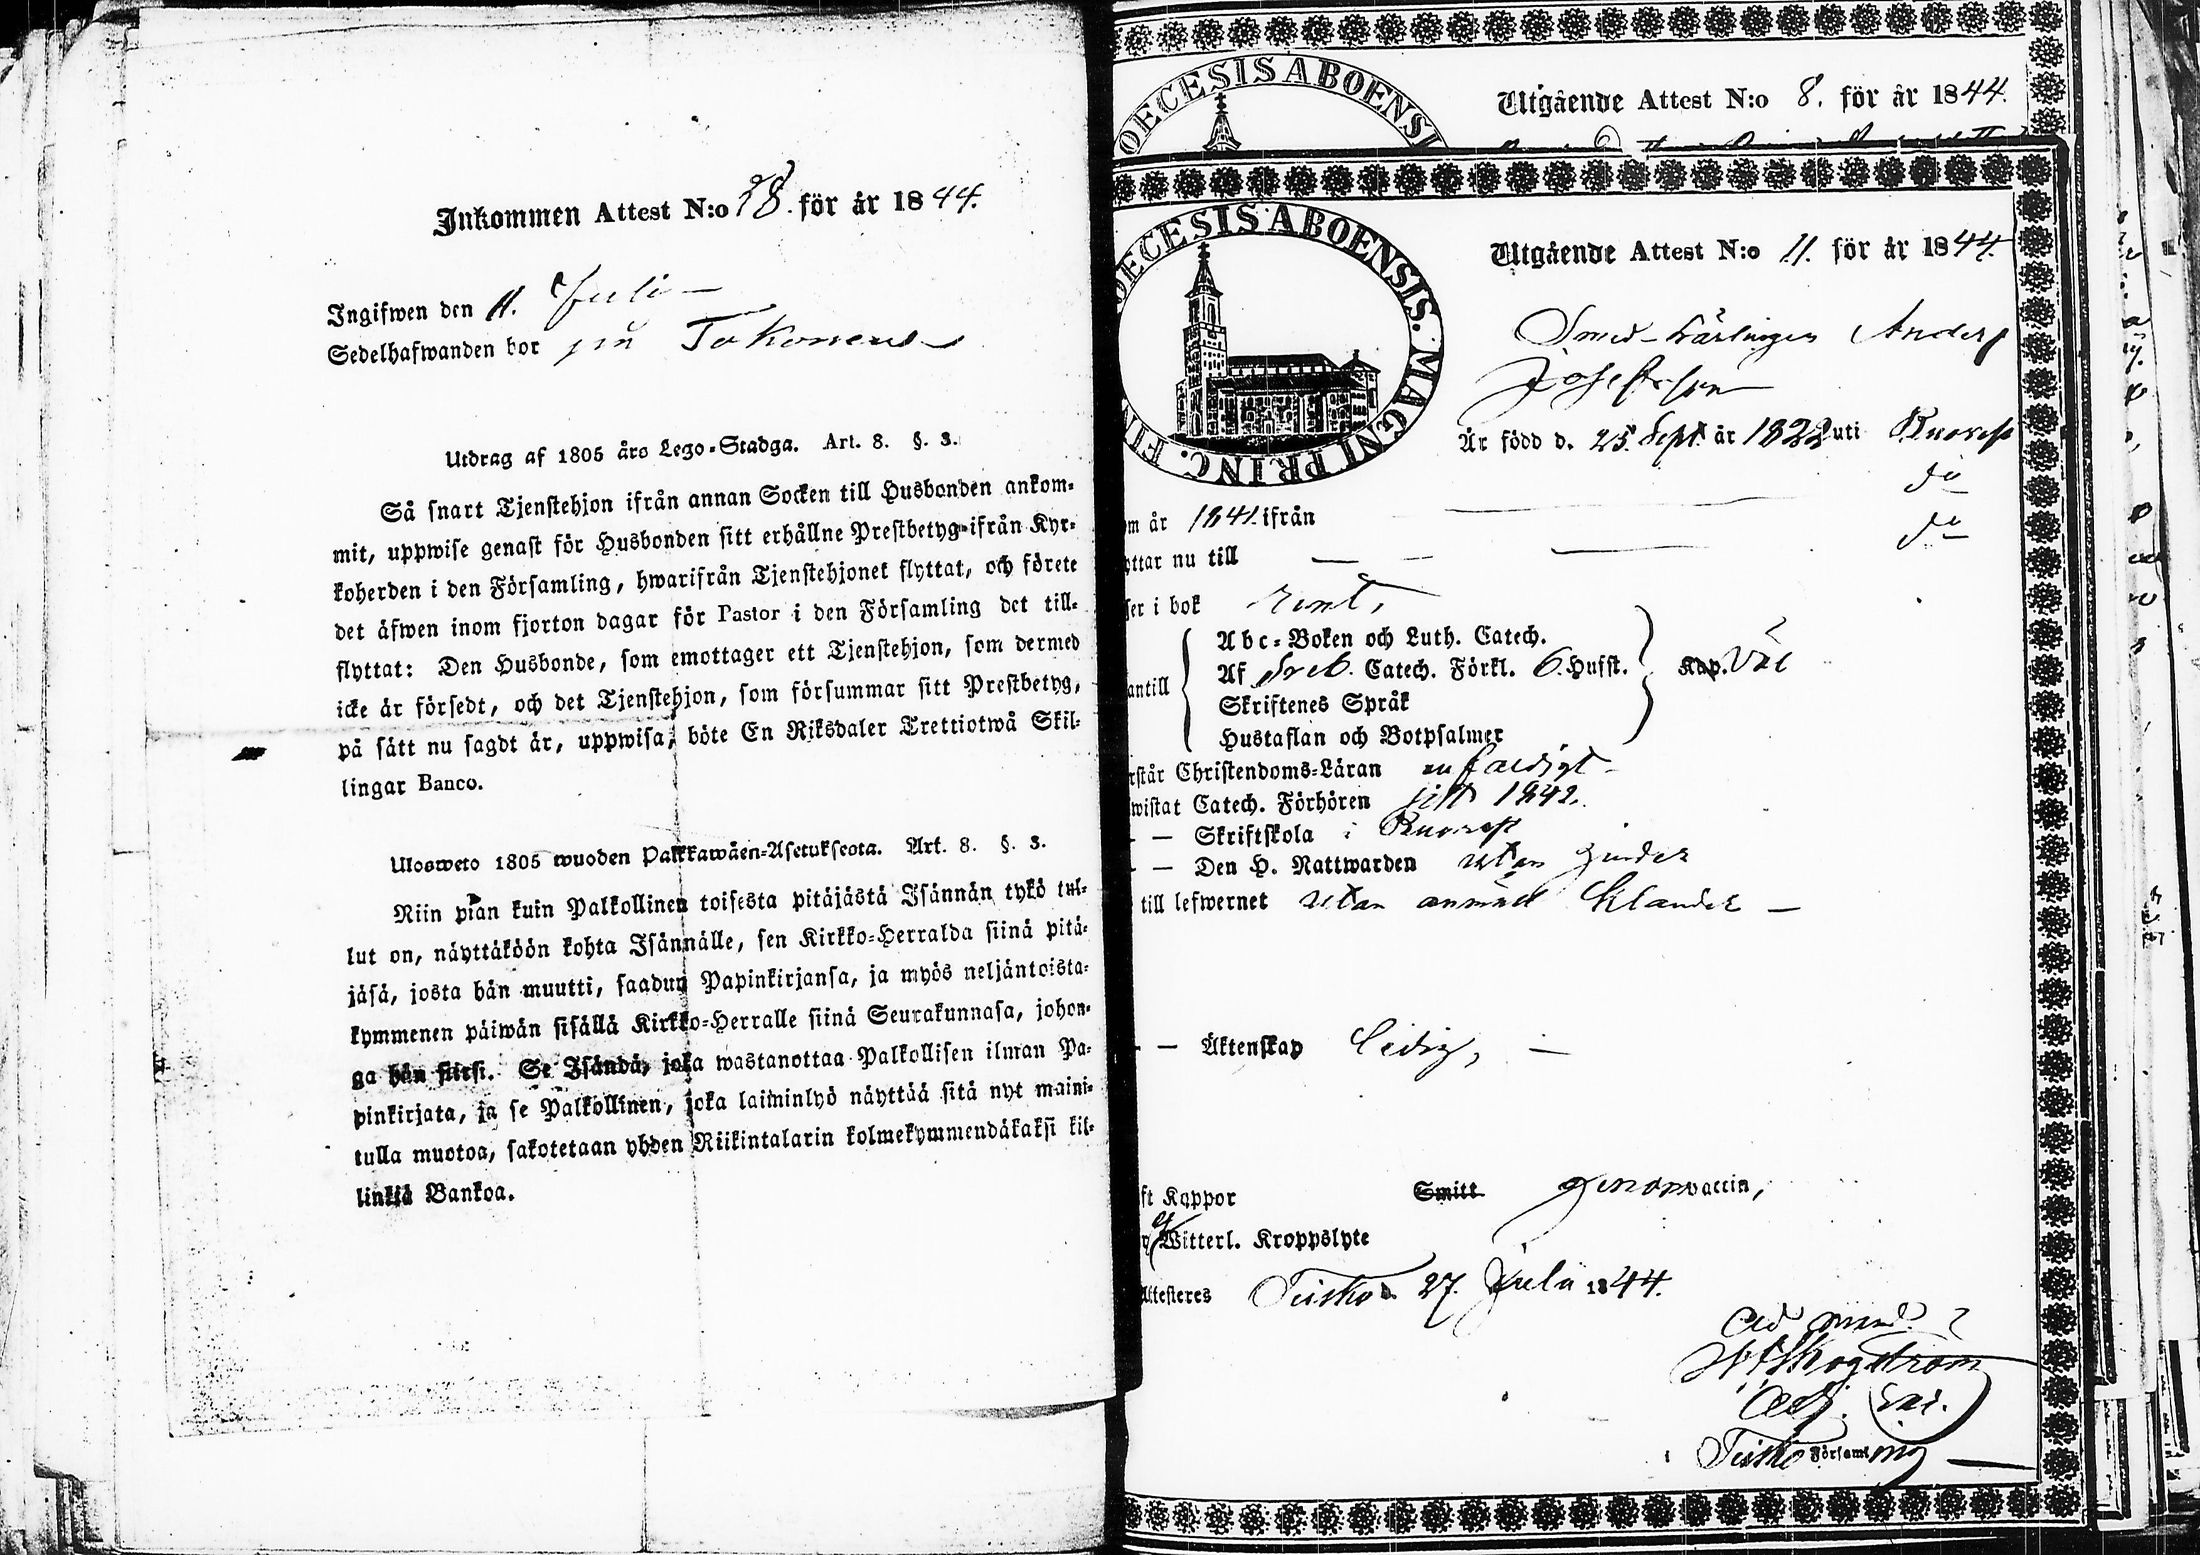 Inkommen Attest N:o 28. för år 1844.
Ingifwen den 11. Juli
Sedelhafwanden bor på Tokonens
Utdrag af 1805 års Lego-Stadga. Art. 8. §. 3.
Så snart Tjenstehjon ifrån annan Socken till Husbonden ankom-
mit, uppwise genast för Husbonden sitt erhållne Prestbetyg ifrån Kyr-
koherden i den Församling, hwarifrån Tjenstehjonet flyttat, och förete
det äfwen inom fjorton dagar för Pastor i den Församling det till-
flyttat: Den Husbonde, som emottager ett Tjenstehjon, som dermed
icke är försedt, och det Tjenstehjon, som försummar sitt Prestbetyg,
på sätt nu sagdt är, uppwisa, böte En Riksdaler Trettiotwå Skil-
lingar Banco.
Ulosweto 1805 wuoden Palkkawäen-Asetuksesta. Art. 8. §. 3.
Niin pian kuin Palkollinen toisesta pitäjästä Isännän tykö tul-
lut on, näyttäköön kohta Isännälle, sen Kirkko-Herralda siinä pitä-
jäsä, josta hän muutti, saadun Papinkirjansa, ja myös neljäntoista-
kymmenen päiwän sisällä Kirkko-Herralle siinä Seurakunnasa, johon-
ga hän siirsi. Se Isändä, joka wastanottaa Palkollisen ilman Pa-
pinkirjata, ja se Palkollinen, joka laiminlyö näyttää sitä nyt maini-
tulla muotoa, sakotetaan yhden Riikintalarin kolmekymmendäkaksi kil-
linkiä Bankoa.
OECESIS ABOENSI
Utgående Attest N:o 8. för år 1844.
OECESIS ABOENSIS. MAGNI PRINC. FIN
Utgående Attest N:o 11. för år 1844.
Smed-Lärlingen Anders
Josefsson
Är född d. 25. Sept. år 1822 uti Ruovesi
om år 1841. ifrån do
yttar nu till do
ser i bok rent,
Abc-Boken och Luth. Catech.
Af Sveb. Catech. Förkl. 6. Hufst.
antill Kap. Väl
Skriftenes Språk
Hustaflan och Botpsalmer
rstår Christendoms-Läran enfaldigt
wistat Catech. Förhören sist 1842.
— Skriftskola i Ruovesi
— Den H. Nattwarden utan hinder
till lefwernet utan anmäld klander —
— Äktenskap ledig, —
ft Koppor Smitt genom vaccin,
ej Witterl. Kroppslyte
Attesteres Teisko d. 27. Julii 1844.
Ad mand.
Skogström
Adj. Sac.
i Teisko Församling